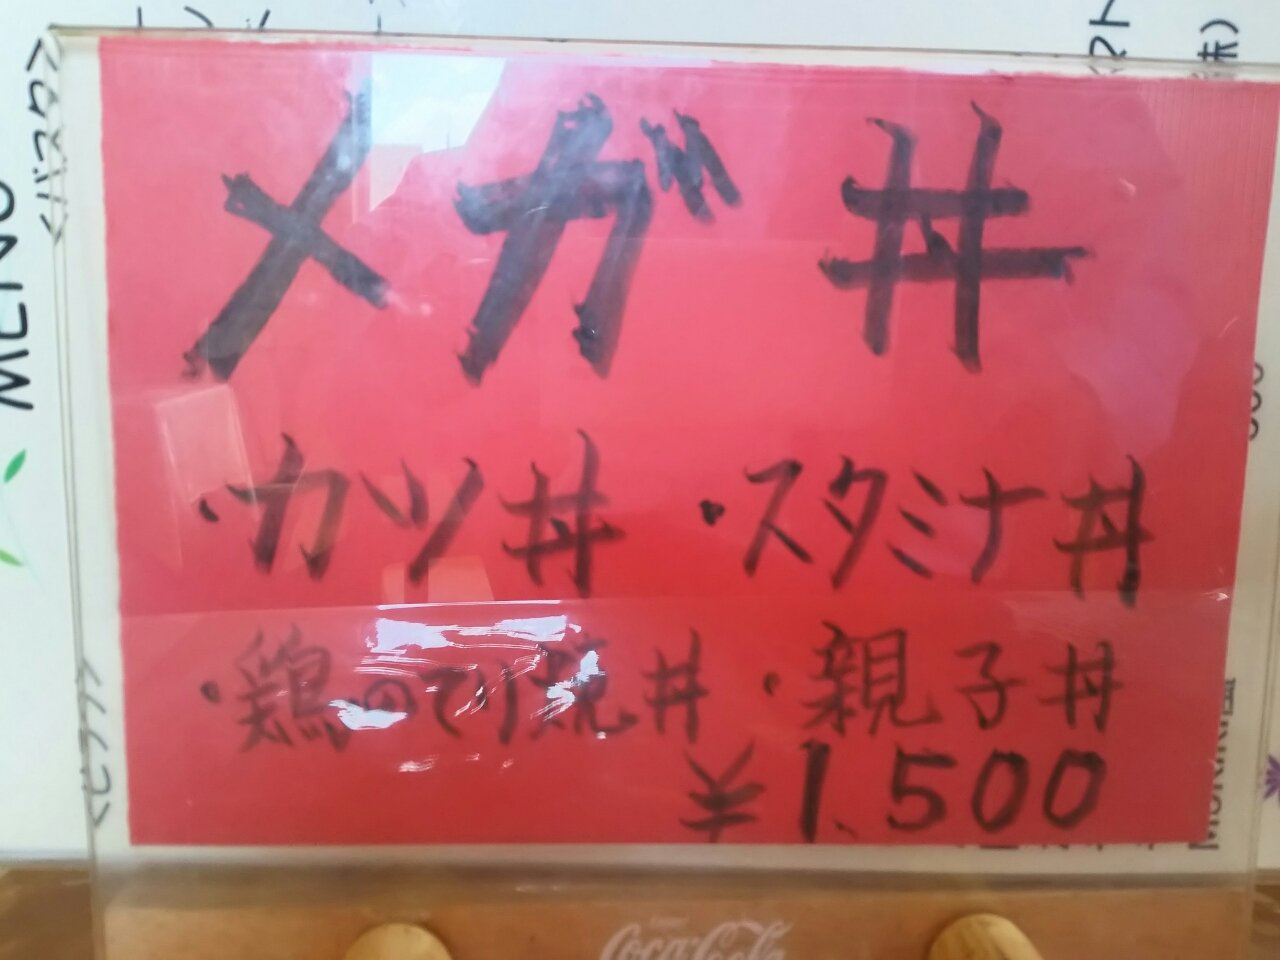 メガ丼
・カツ丼 ・スタミナ丼
・鶏のてり焼丼 ・親子丼
¥1,500
MENU
Coca-Cola